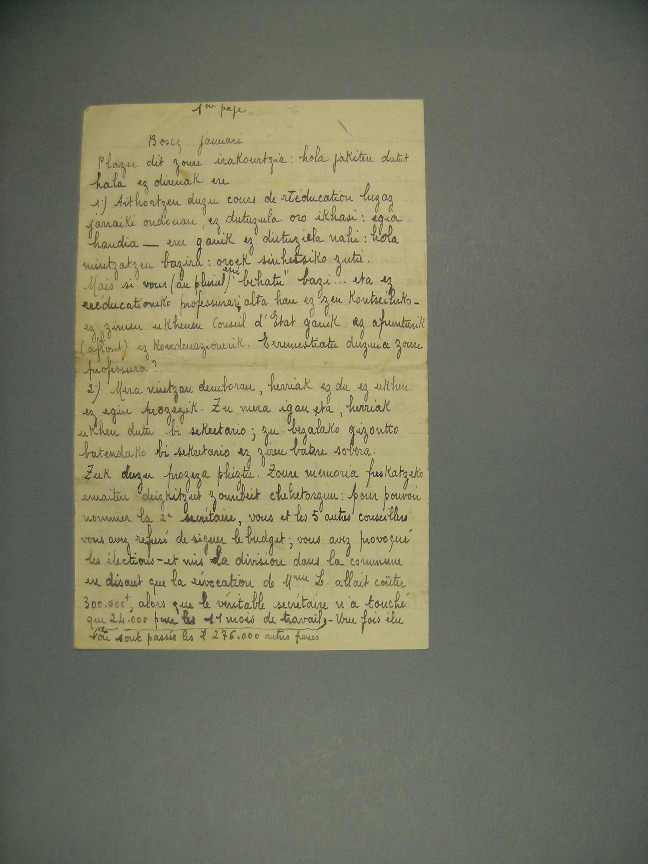 1ère page
Boscq jaunari
Plazer dit zoure irakourtzia : hola jakiten dutut
hala ez direnak ere
1°) Aithortzen duzu cours de rééducation huzaz
jarraiki ondouan, ez dutuzula oro ikhasi : egia
handia — ere ganik ez dutuziela nahi : hola
mintzatzen bazira : oroek sinhetsiko zutu.
Mais si vous (au pluriel) eni "bihatu" bazi... eta ez
rééducationeko professurari, alta hau ez zen kontseilhuko -
ez zinien ukhenen Conseil d'État ganik ez afrunturik
(affront) ez kondenazionerik. Erremestiatu duzuia zoure
professura ?
2°) Mera nintzan demboran, herriak ez du ez ukhen
ez egin prozezik. Zu mera igan eta, herriak
ukhen dutu bi sekretario ; zu bezalako gizontto
batendako bi sekretario ez ziren batere sobera.
Zuk duzu prozeza phiztu. Zoure memoria freskatzeko
emaiten deizkitzut zoumbeit cheketarzun : pour pouvoir
nommer la 2e secrétaire, vous et les 5 autres conseillers
vous avez refusé de signer le budget ; vous avez provoqué
les élections - et mis la division dans la commune
en disant que la révocation de Mme L. allait coûter
300.000f, alors que le véritable secrétaire n'a touché
que 24.000 pour les 11 mois de travail, - Une fois élu
où sont passés les 276.000 autres francs